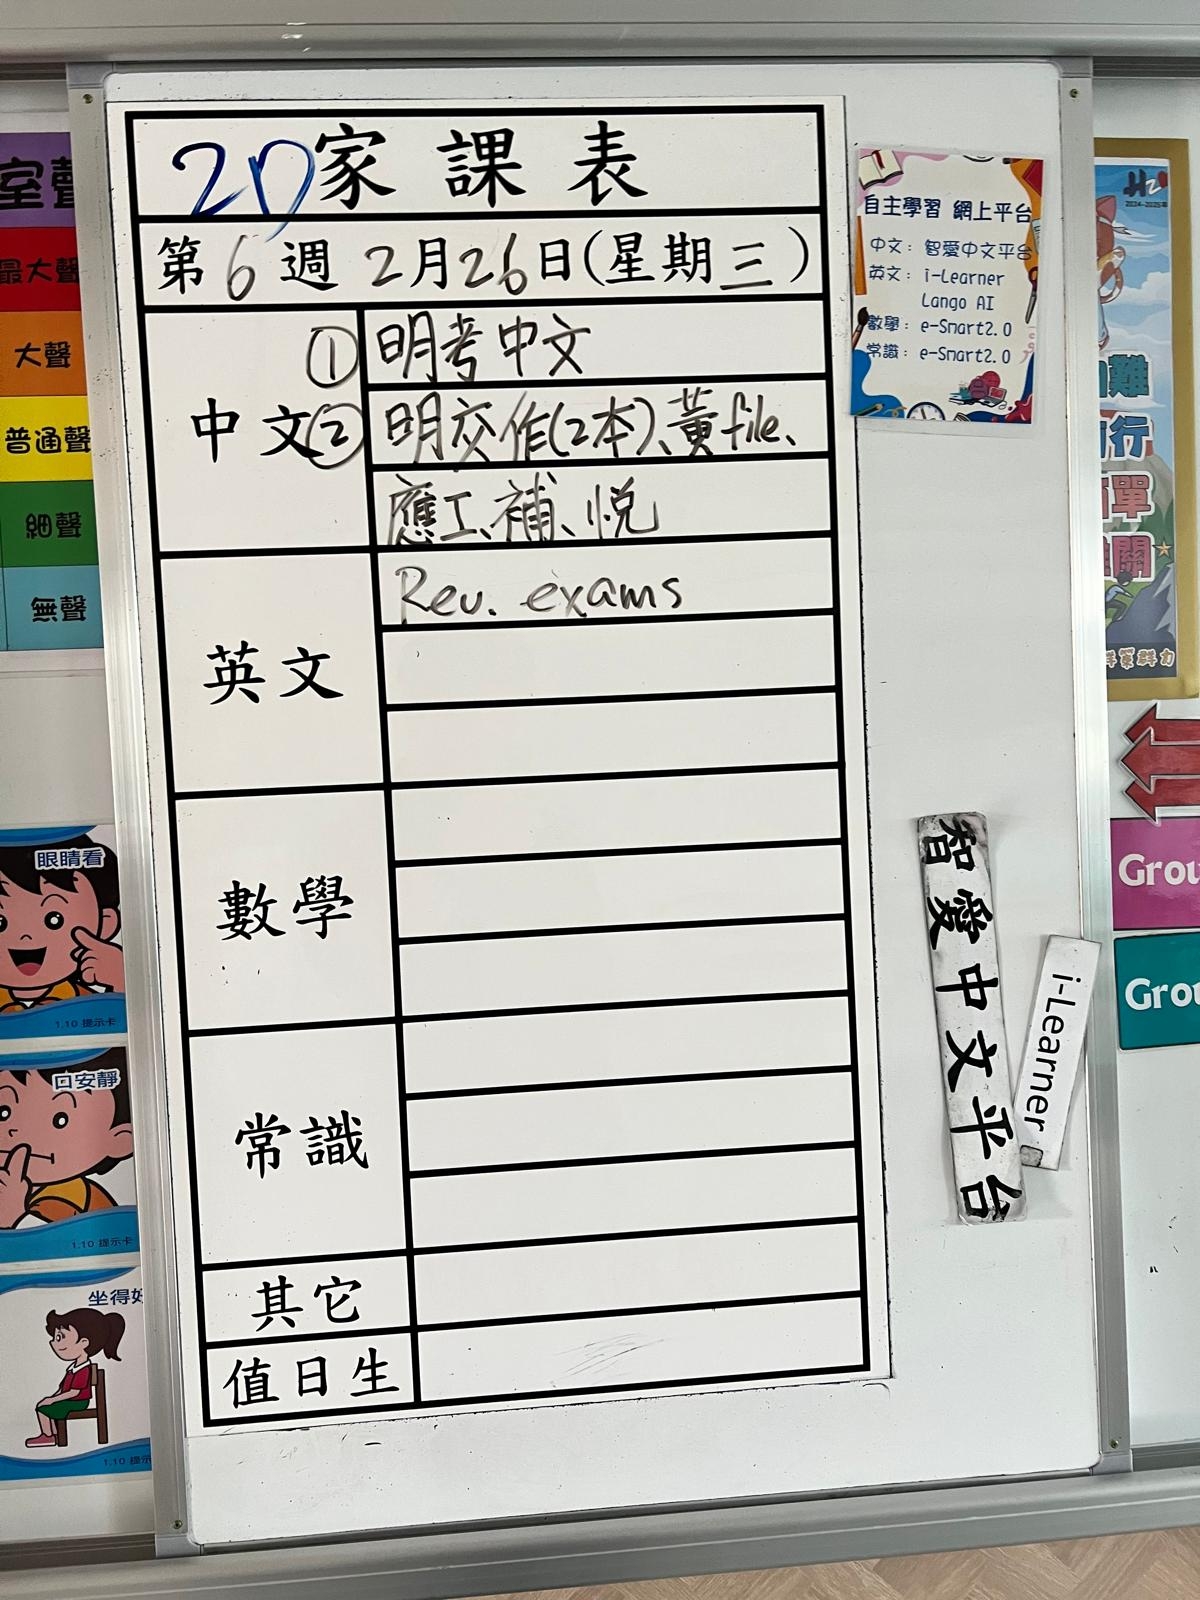 2D家課表
第6週 2月26日(星期三)
中文
① 明考中文
② 明交作(2本)、黃file、
應工、補、悅
英文
Rev. exams
數學
常識
其它
值日生
自主學習 網上平台
中文：智愛中文平台
英文：i-Learner
Lango AI
數學：e-Smart2.0
常識：e-Smart2.0
智愛中文平台
i-Learner
室聲
最大聲
大聲
普通聲
細聲
無聲
眼睛看
1.10 提示卡
口安靜
1.10 提示卡
坐得好
1.10 提示
2024-2025年
難
行
單
關
群策群力
Grou
Grou